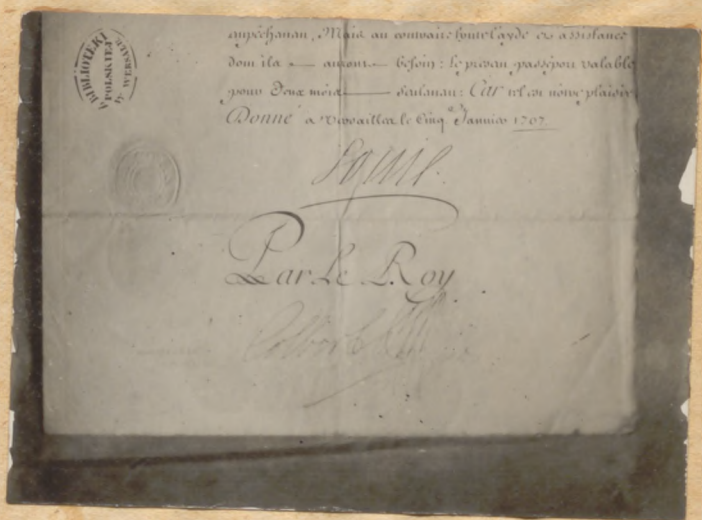 BIBLIOTEKI
POLSKIEJ
W WERSALU
Mais au contraire toute l'ayde et assistance
dont ils auront besoin: le present passeport valable
pour Deux mois seulement: Car tel est nôtre plaisir
Donné a Versailles le Cinq Janvier 1707.
Louis
Par Le Roy
Colbert